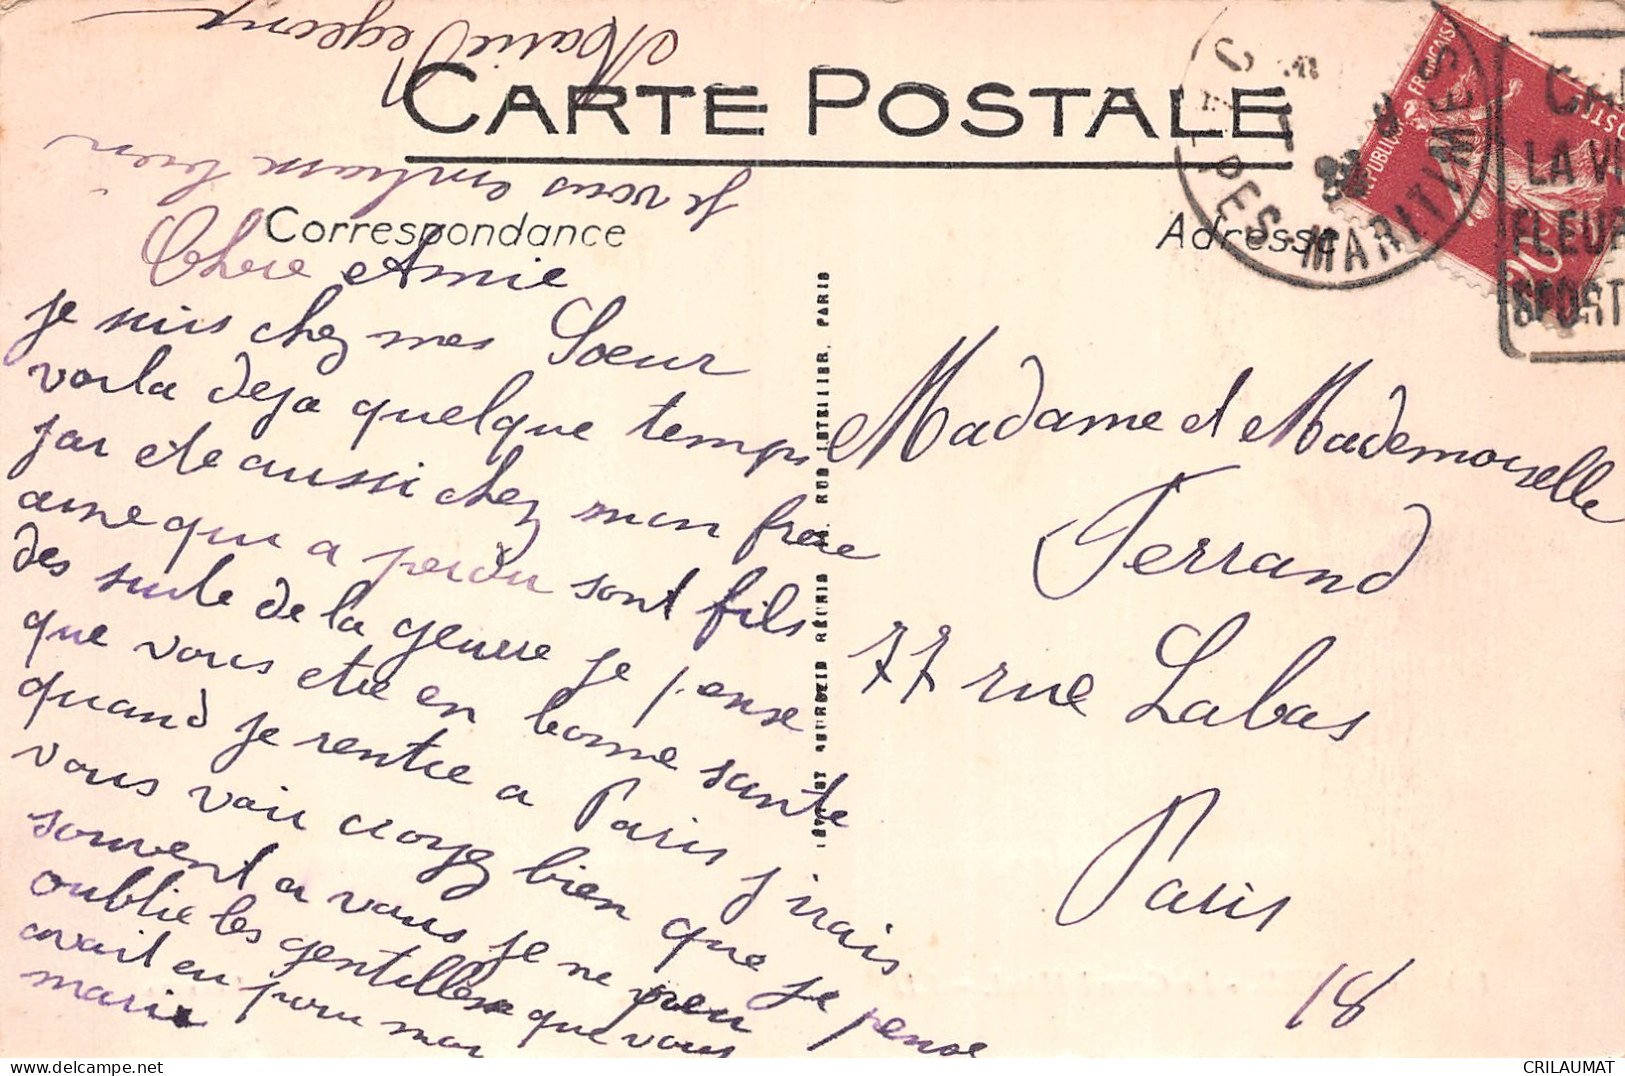 CARTE POSTALE
Correspondance
Adresse
Chere Amie
je suis chez mes Soeur
voila deja quelque temps
jai ete aussi chez mon frere
aine qui a perdu sont fils
des suite de la geurre je pense
que vous etre en bonne sante
quand je rentre a Paris j'irais
vous vair croyez bien que je pense
souvent a vous je ne peu
oublie les gentillesse que vous
avait eu pour mon
marie
je vous embrasse bien
Marie
Madame et Mademoiselle
Ferrand
77 rue Labas
Paris
18
PES-MARITIMES
REPUBLIQUE FRANÇAISE
POST
20
CA
LA VI
FLEUR
SPORT
RÉUNIS
PARIS
CRILAUMAT